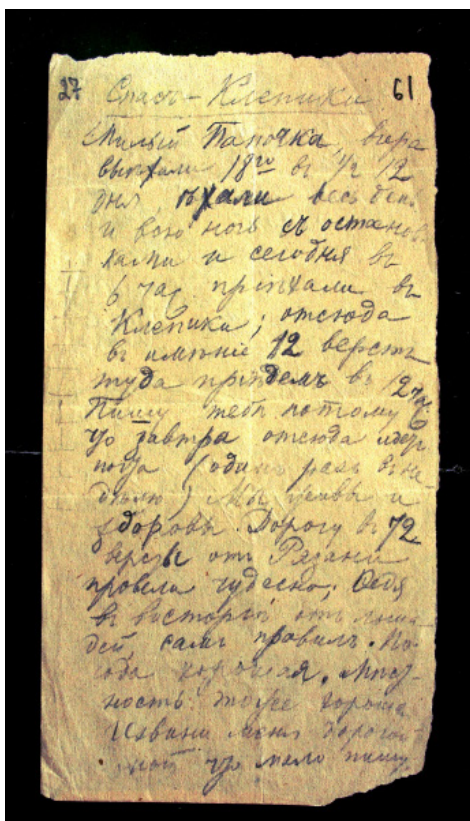 27 Спасъ-Клепики 61
Милый Папочка, вчера
выѣхали 18го въ 1/2 12
дня, ѣхали весь день
и всю ночь съ останов
ками и сегодня въ
6 час пріѣхали въ
Клепики; отсюда
въ имѣніе 12 верстъ
туда пріѣдемъ въ 12 час
Пишу тебѣ потому
что завтра отсюда идетъ
почта (одинъ разъ въ не
дѣлю) Мы живы и
здоровы. Дорогу въ 72
версты отъ Рязани
провели чудесно; Федя
въ восторгѣ отъ лоша
дей, самъ правилъ. По
года хорошая. Мѣст-
ность тоже хороша
Извини меня дорогой
что мало пишу